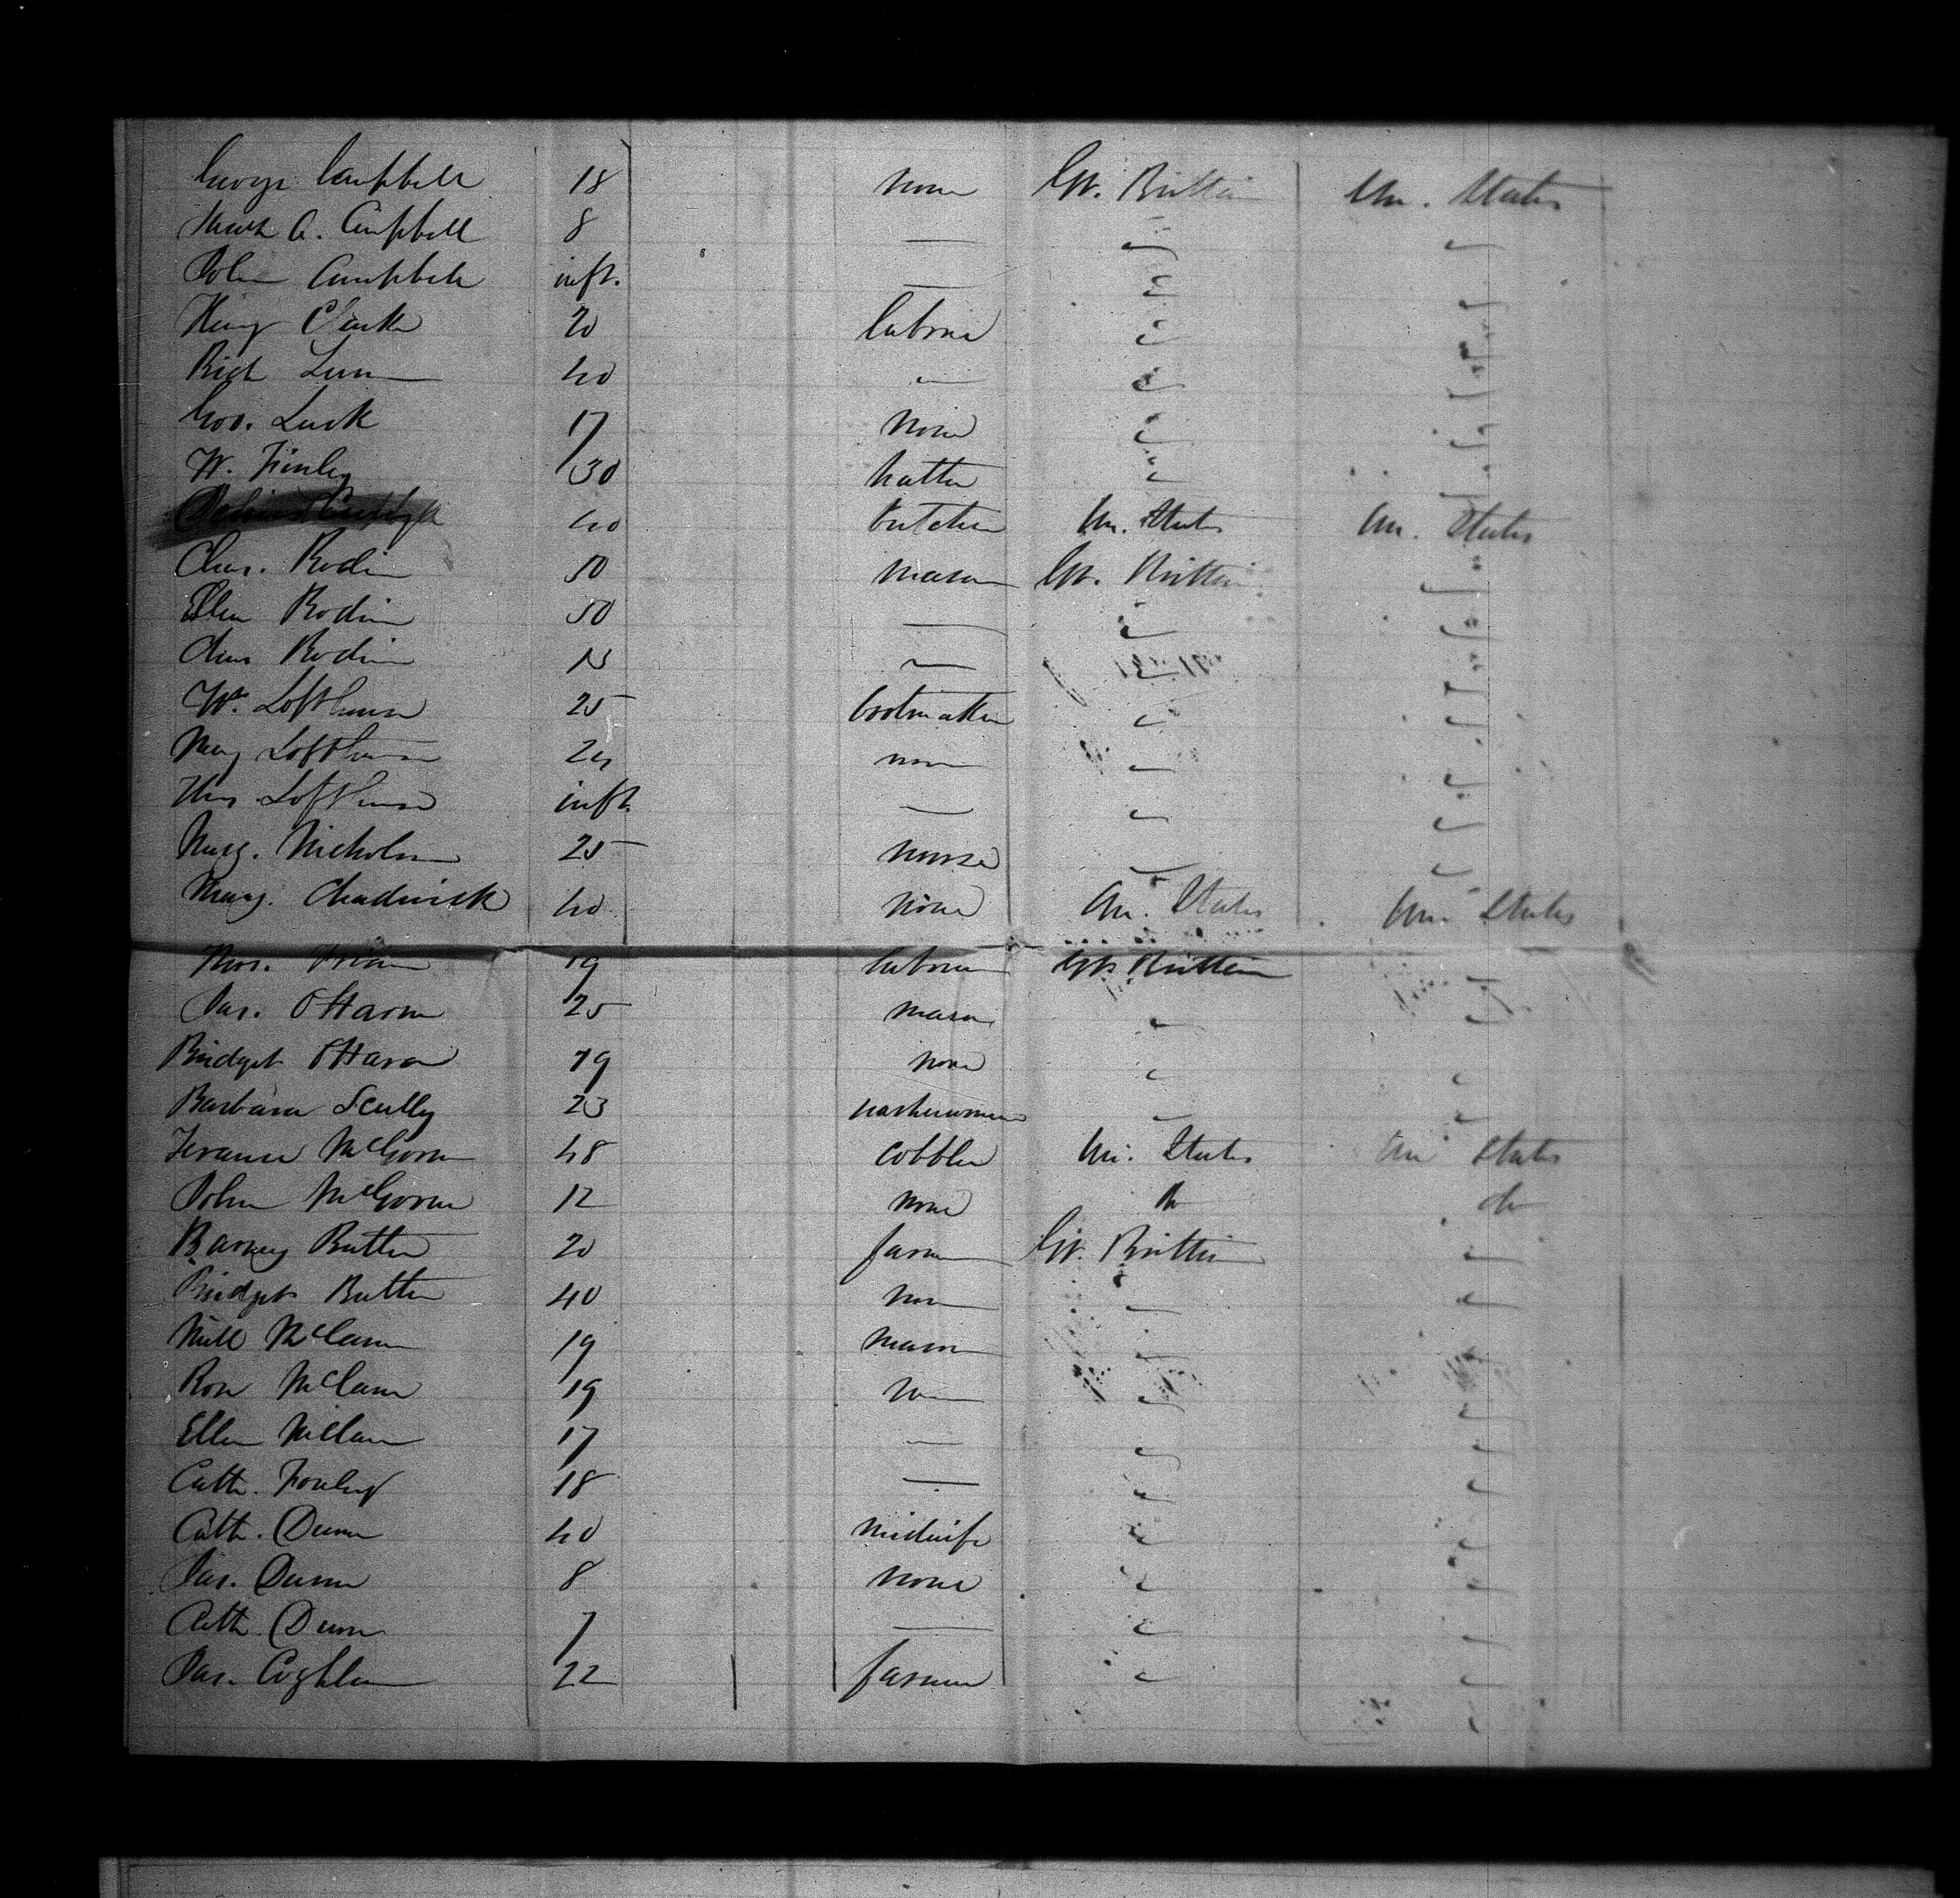 George Campbell 18 none Gr. Brittain Un. States
A. Campbell 8 — "
John Campbell inft. — "
Henry Clark 20 laborer "
Rich 40 "
Geo. Lusk 17 none "
W. Finley 30 hatter "
40 butcher Un. States Un. States
Chas. Rodin 50 mason Gr. Brittain
Ellen Rodin 50 — "
Chas Rodin — "
Wm. Lofthouse 25 bootmaker "
Mary Lofthouse 24 none "
Thos. Lofthouse inft. — "
Marg. Nicholson 25 nurse "
Marg. Chadwick 40 none Un. States Un. States
Thos. 19 laborer Gr. Brittain
Jas. O'Hara 25 mason "
Bridget O'Hara 19 none "
Barbara Scully 23 washerwoman "
Terance McGovern 48 cobbler Un. States Un States
John McGovern 12 none do do
Barney Butler 20 farmer Gr. Brittain "
Bridget Butler 40 none "
McCann 19 mason "
Rose McCann 19 none "
Ellen McCann 17 — "
Cath. 18 — "
Cath. Dunn 40 midwife "
Jas. Dunn 8 none "
Cath. Dunn 7 — "
Jas. Coghlan 22 farmer "